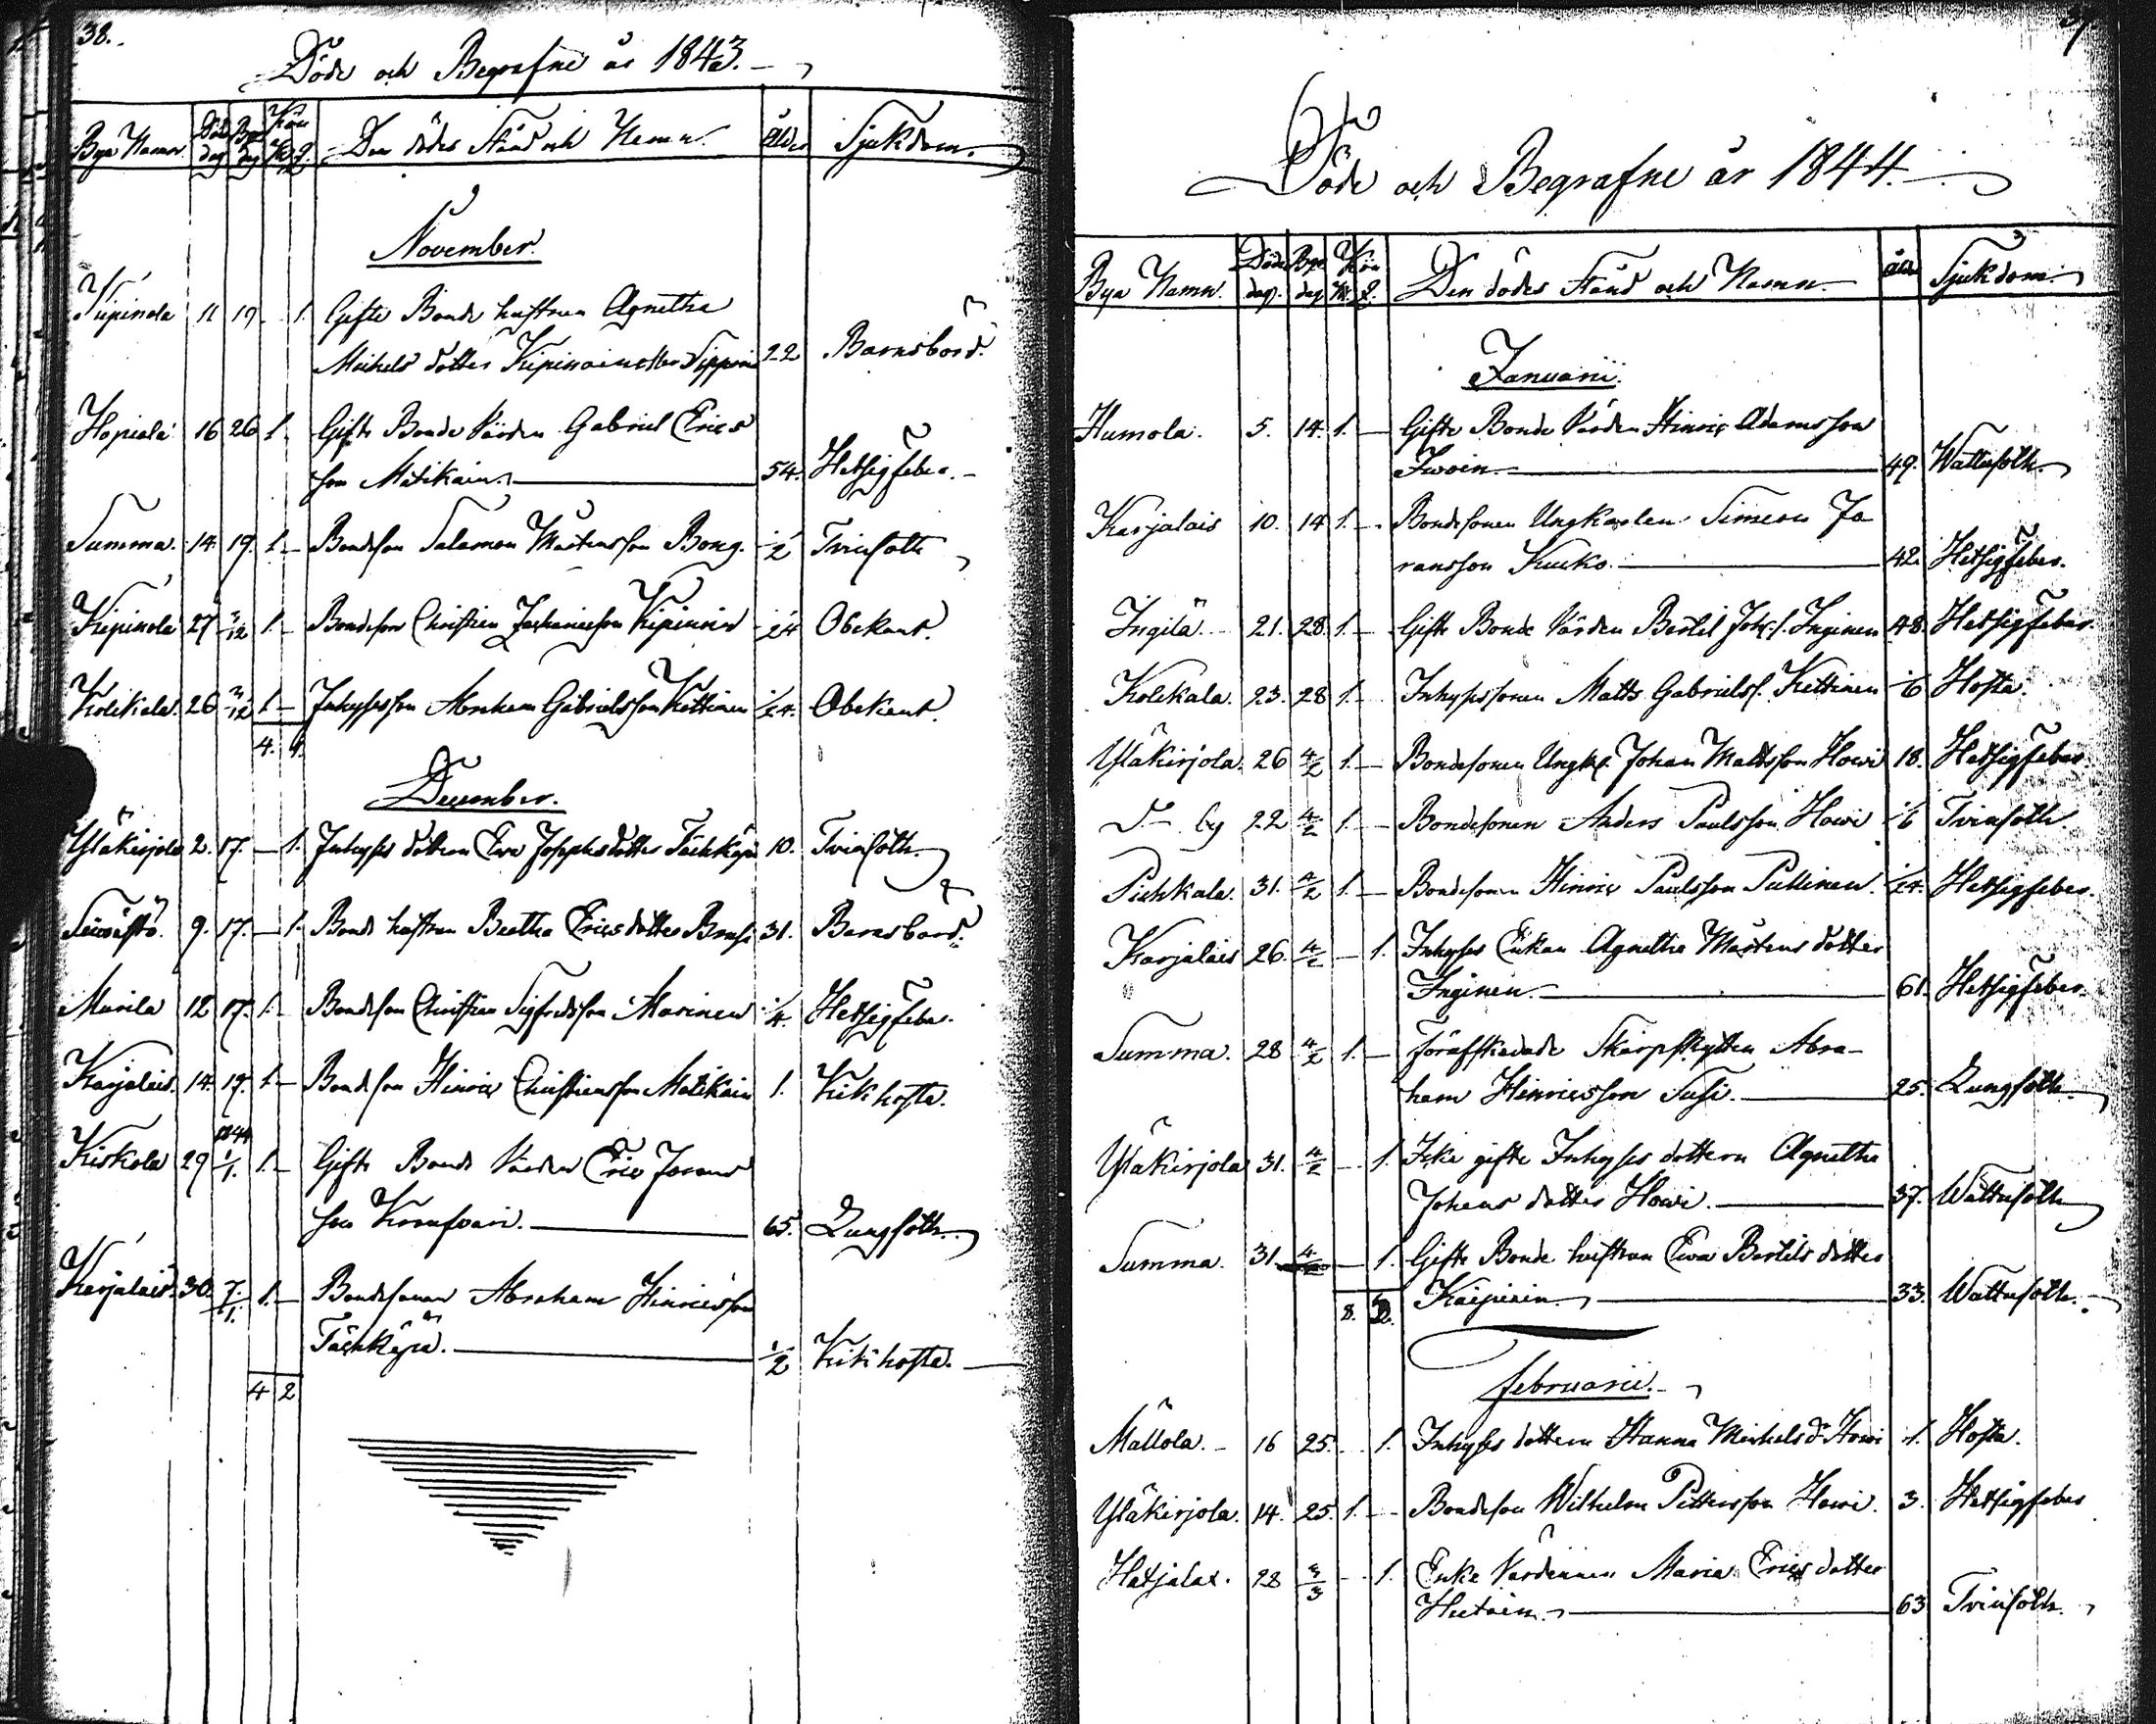 38.
Döde och Begrafne år 1843.
Bya Namn. Döds dag Begr dag Kön M. Q. Den dödes Stånd och Namn. Ålder Sjukdom.
November.
Kipinola 11 19 - 1. Gifte Bonde hustrun Agnetha
Michels dotter Kipinoin 22 Barnsbörd.
Hopiala 16 26 1. Gifte Bonde Värden Gabriel Erics
son Mätikäin. 54. Hetsigfeber.
Summa. 14 19. 1. - Bondeson Salamon Mårtensson Bong. 1/2 Tvinsoth
Kipinola 27 3/12 1. - Bondeson Christian Zachariesson Kipinoin 1/24 Obekant.
Kolekala. 26 3/12 1. - Inhysesson Abraham Gabrielsson Kettinen 1/24. Obekant.
4. 1.
December.
Yläkirjola 2. 17. - 1. Inhyses dottren Eva Josephsdotter Täckkäpä 10. Tvinsoth.
Seiväströ. 9. 17. - 1. Bonde hustrun Beatha Ericsdotter 31. Barnsbörd.
Murila 12 17. 1. Bondeson Christian Sigfredsson Murinen 1/4. Hetsigfeber.
Karjalais. 14. 19. 1. - Bondeson Hinric Christiansson Mätikäin 1. Kikhosta.
Kiskola 29 1844 1/1. 1. - Gifte Bonde Värden Eric Jorans
son 65. Lungsoth.
Karjalais. 30. 7/1. 1. - Bondesonen Abraham Hinricsson
Täckkäpä. 1/2 Kikhosta.
4 2
39.
Döde och Begrafne år 1844.
Bya Namn. Döds dag. Begr dag Kön M. Q. Den dödes Stånd och Namn. Ålder Sjukdom.
Januarii.
Humola. 5. 14. 1. - Gifte Bonde Värden Hinric Adamsson
Iwoin. 49. Wattusoth.
Karjalais 10. 14 1. - Bondesonen Ungkarlen Simeon Jo
ransson Kuko. 42. Hetsigfeber.
Ingilä. 21. 28. 1. - Gifte Bonde Värden Bertil Joh:s. Inginen 48. Hetsigfeber.
Kolekala. 23. 28 1. - Inhysessonen Matts Gabriels. Kettinen 1/6 Hosta.
Yläkirjola. 26 4/2 1. - Bondesonen Ungk. Johan Mattsson Howi 18. Hetsigfeber.
D:o by 22 4/2 1. - Bondesonen Anders Paulsson Howi 1/6 Tvinsoth.
Pichkala. 31. 4/2 1. - Bondesonen Hinric Paulsson Pullinen. 1/24. Hetsigfeber.
Karjalais 26. 4/2 - 1. Inhyses Enkan Agnetha Mårtens dotter
Inginen. 61. Hetsigfeber.
Summa. 28 4/2 1. - Förafskedade Skarpskytten Abra-
ham Hinricsson Susi. 25. Lungsoth.
Yläkirjola 31. 4/2 - 1. Icke gifte Inhyses dottern Agnetha
Johans dotter Howi. 37. Wattusoth
Summa. 31. 4/2 - 1. Gifte Bonde hustrun Ewa Bertils dotter
8. 3. Kaipiain. 33. Wattusoth.
Februarii.
Mällola. 16 25. - 1. Inhyses dottern Hanna Michels d. Howi 1. Hosta.
Yläkirjola. 14. 25. 1. - Bondeson Wilhelm Pettersson Howi. 3. Hetsigfeber
Hatjalax. 28 3/3 - 1. Enke Värdinnan Maria Erics dotter
Hutoin. 63 Tvinsoth.